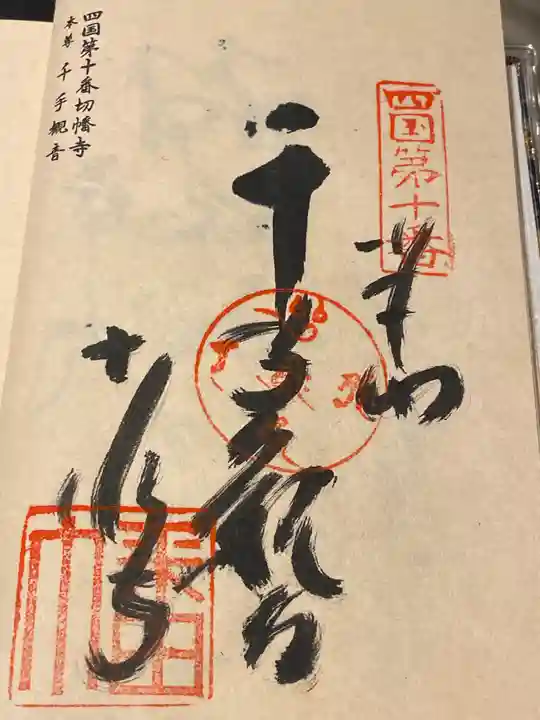 四国第十番切幡寺
本尊 千手観音
四国第十番
奉納
千手観音
切幡寺